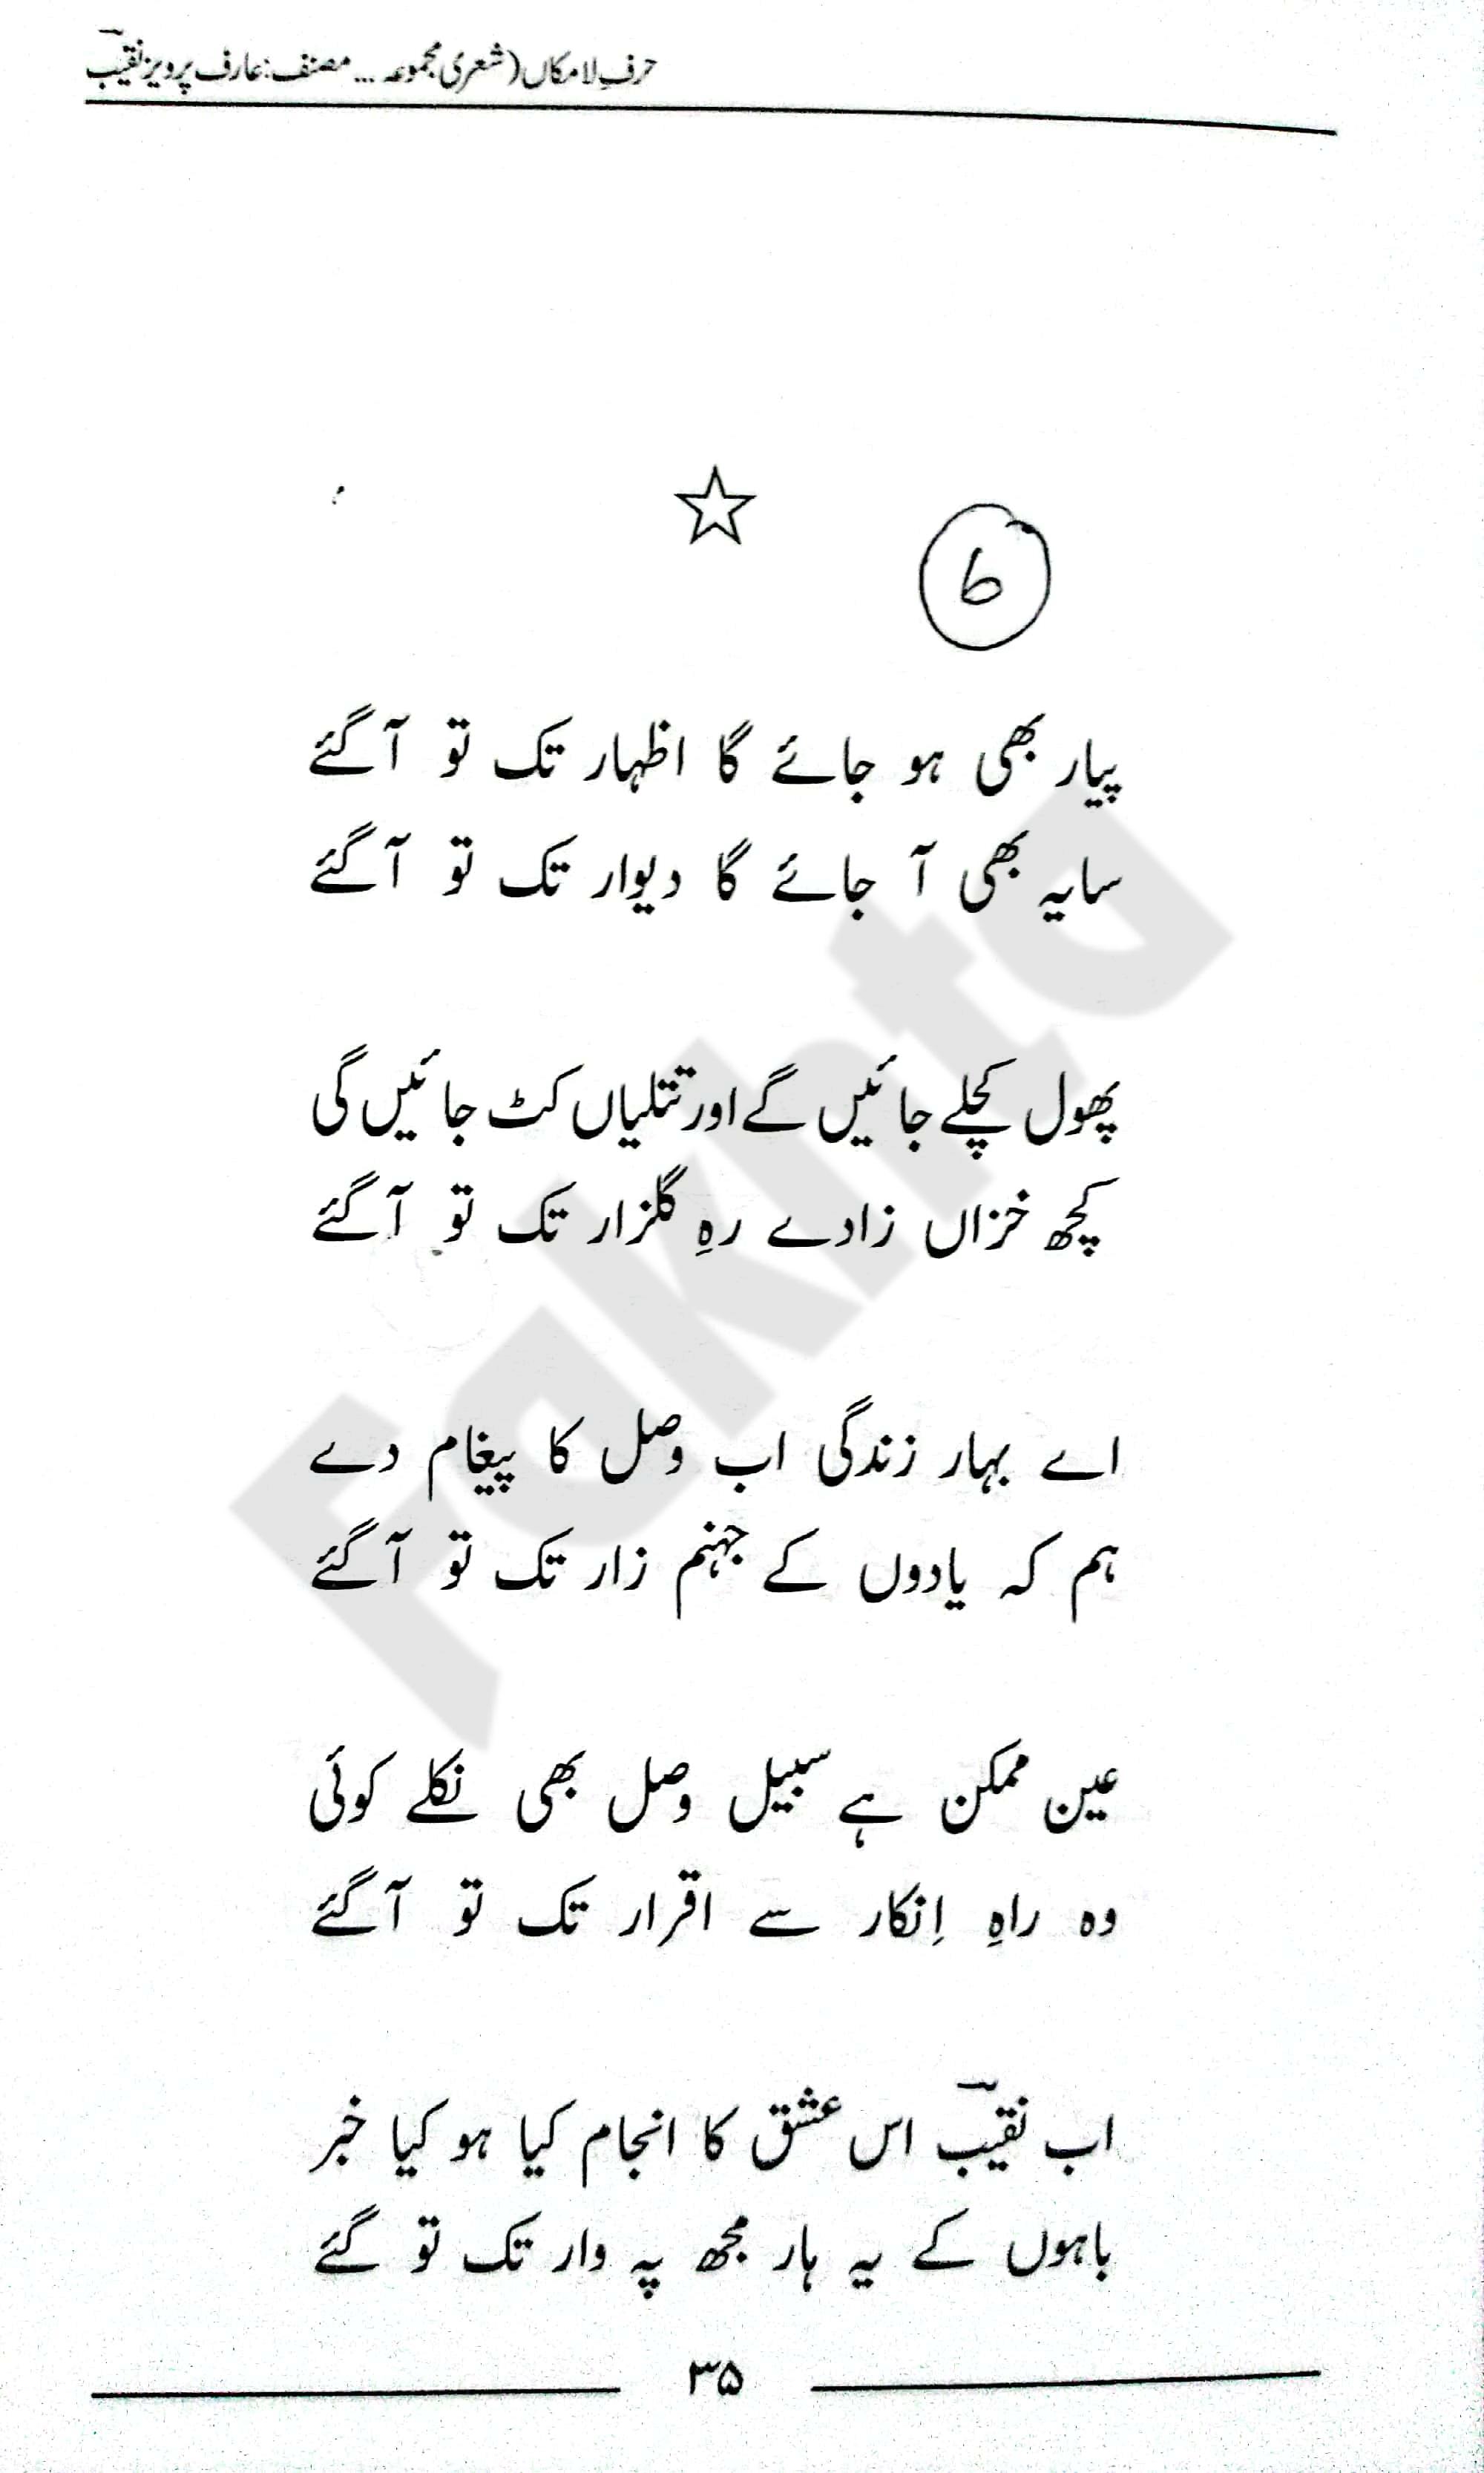 حرفِ لامکاں (شعری مجموعہ ... مصنف: عارف پرویز نقیبؔ
6
پیار بھی ہو جائے گا اظہار تک تو آ گئے
سایہ بھی آ جائے گا دیوار تک تو آ گئے
پھول کچلے جائیں گے اور تتلیاں کٹ جائیں گی
کچھ خزاں زادے رہِ گلزار تک تو آ گئے
اے بہار زندگی اب وصل کا پیغام دے
ہم کہ یادوں کے جہنم زار تک تو آ گئے
عین ممکن ہے سبیل وصل بھی نکلے کوئی
وہ راہِ اِنکار سے اقرار تک تو آ گئے
اب نقیبؔ اس عشق کا انجام کیا ہو کیا خبر
باہوں کے یہ ہار مجھ پہ وار تک تو گئے
۳۵
Fakhta